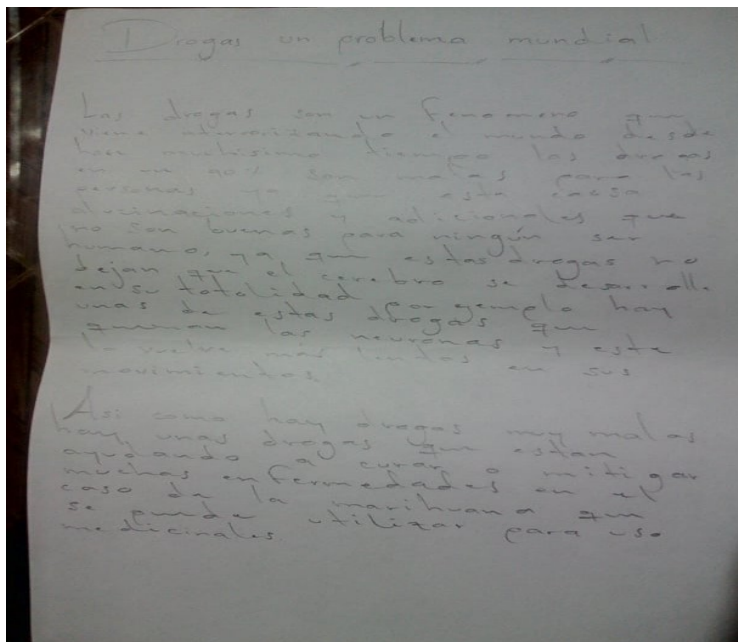 Drogas un problema mundial
Las drogas son un fenomeno que
viene aterrorizando el mundo desde
hace muchisimo tiempo las drogas
en un 90% son malas para las
personas ya que esta causa
alucinaciones y adicionales que
no son buenas para ningún ser
humano, ya que estas drogas no
dejan que el cerebro se desarrolle
en su totalidad por ejemplo hay
unas de estas drogas que
queman las neuronas y esta
lo vuelve más lentos en sus
movimientos.
Asi como hay drogas muy malas
hay unas drogas que estan
ayudando a curar o mitigar
muchas enfermedades en el
caso de la marihuana que
se puede utilizar para uso
medicinales.